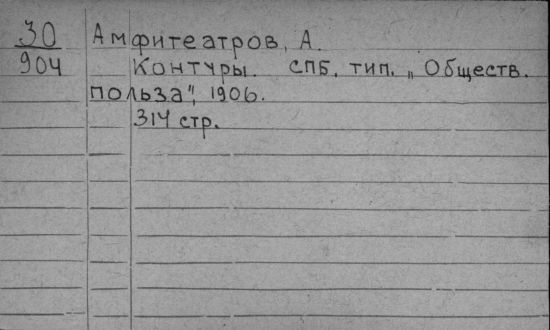 30 Амфитеатров, А.
904 Контуры. СПБ, тип. „Обществ.
польза", 1906.
314 стр.